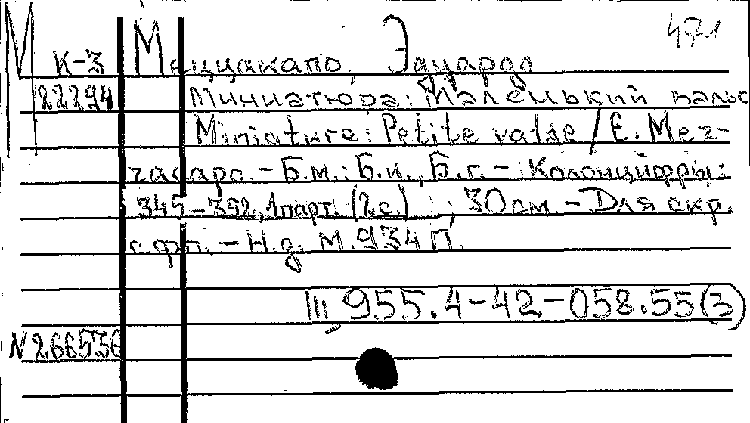 М 471
К-3 Меццакапо, Эдуардо
22294 Миниатюра: Маленький вальс
Miniature: Petite valse / E. Mez-
zacapo. - Б.м.: Б.и., Б.г. - Колонцифры:
345-392, 1 парт. (2 с.) ; 30 см. - Для скр.
с фп. - Н.д. М.934 П.
III, 955.4-42-058.55(3)
N 266536